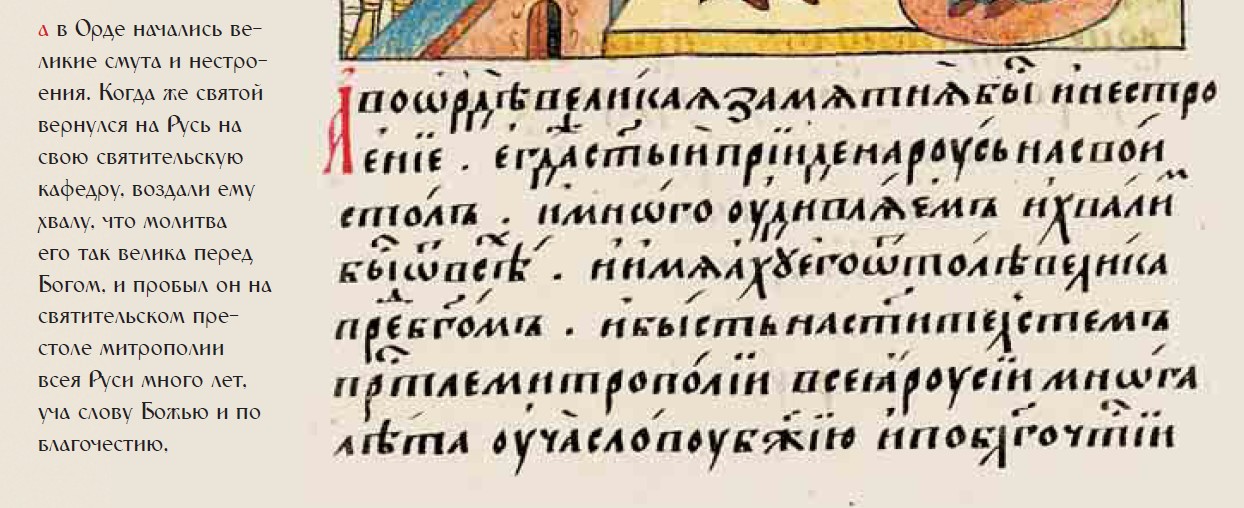 а в Орде начались ве-
ликие смута и нестро-
ения. Когда же святой
вернулся на Русь на
свою святительскую
кафедру, воздали ему
хвалу, что молитва
его так велика перед
Богом, и пробыл он на
святительском пре-
столе митрополии
всея Руси много лет,
уча слову Божью и по
благочестию.
А поѡрдѣ великаѧ замѧтнѧ бы и нестро
енїе . егда стыи прїиде на роусь на свои
столъ . и мнѡго оудивлѧемъ и хвалим
бы ѿ всѣх . ꙗко
пред бгомъ . и бысть на стмъ
митрополїи всеꙗ роусїи мнѡга
лѣта оуча слову бжїю и по